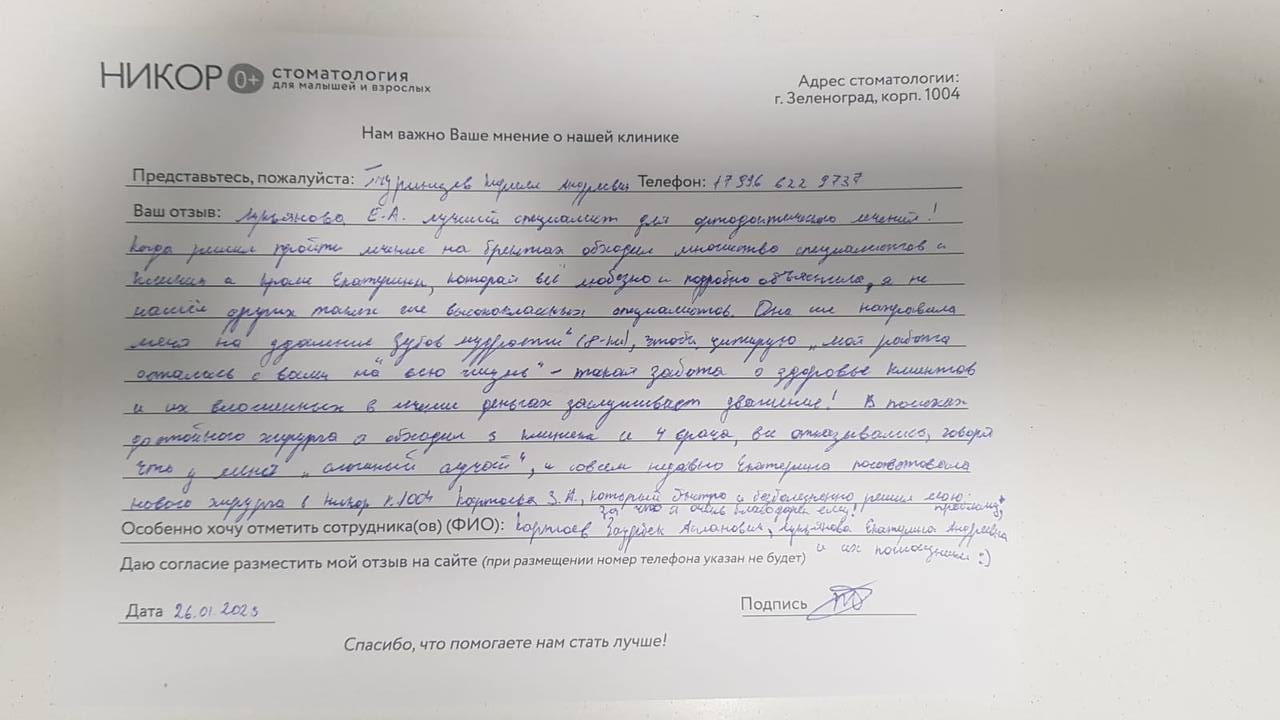 НИКОР 0+ стоматология
для малышей и взрослых
Адрес стоматологии:
г. Зеленоград, корп. 1004
Нам важно Ваше мнение о нашей клинике
Представьтесь, пожалуйста: Андреевич Телефон: +7 996 622 9737
Ваш отзыв: Лукьянова Е.А. лучший специалист для ортодонтического лечения!
Когда решил пройти лечение на брекетах обходил множество специалистов и
клиник и кроме Екатерины, которая всё любезно и подробно объяснила, я не
нашёл других таких же высококлассных специалистов. Она же направила
меня на удаление "зубов мудрости" (8-ки), чтобы, цитирую „моя работа
осталась с вами на "всю жизнь" - такая забота о здоровье клиентов
и их вложенных в лечение деньгах заслуживает уважение! В поисках
достойного хирурга я обходил 3 клиники и 4 врача, все отказывались, говоря
что у меня „сложный случай", и совсем недавно Екатерина посоветовала
нового хирурга в Никор к.1004 Картоева З.А., который быстро и безболезненно решил мою проблему,
за что я очень благодарен ему!
Особенно хочу отметить сотрудника(ов) (ФИО): Картоев Заурбек Асланович, Лукьянова Екатерина Андреевна
и их помощники :)
Даю согласие разместить мой отзыв на сайте (при размещении номер телефона указан не будет)
Дата 26.01.2023
Подпись
Спасибо, что помогаете нам стать лучше!